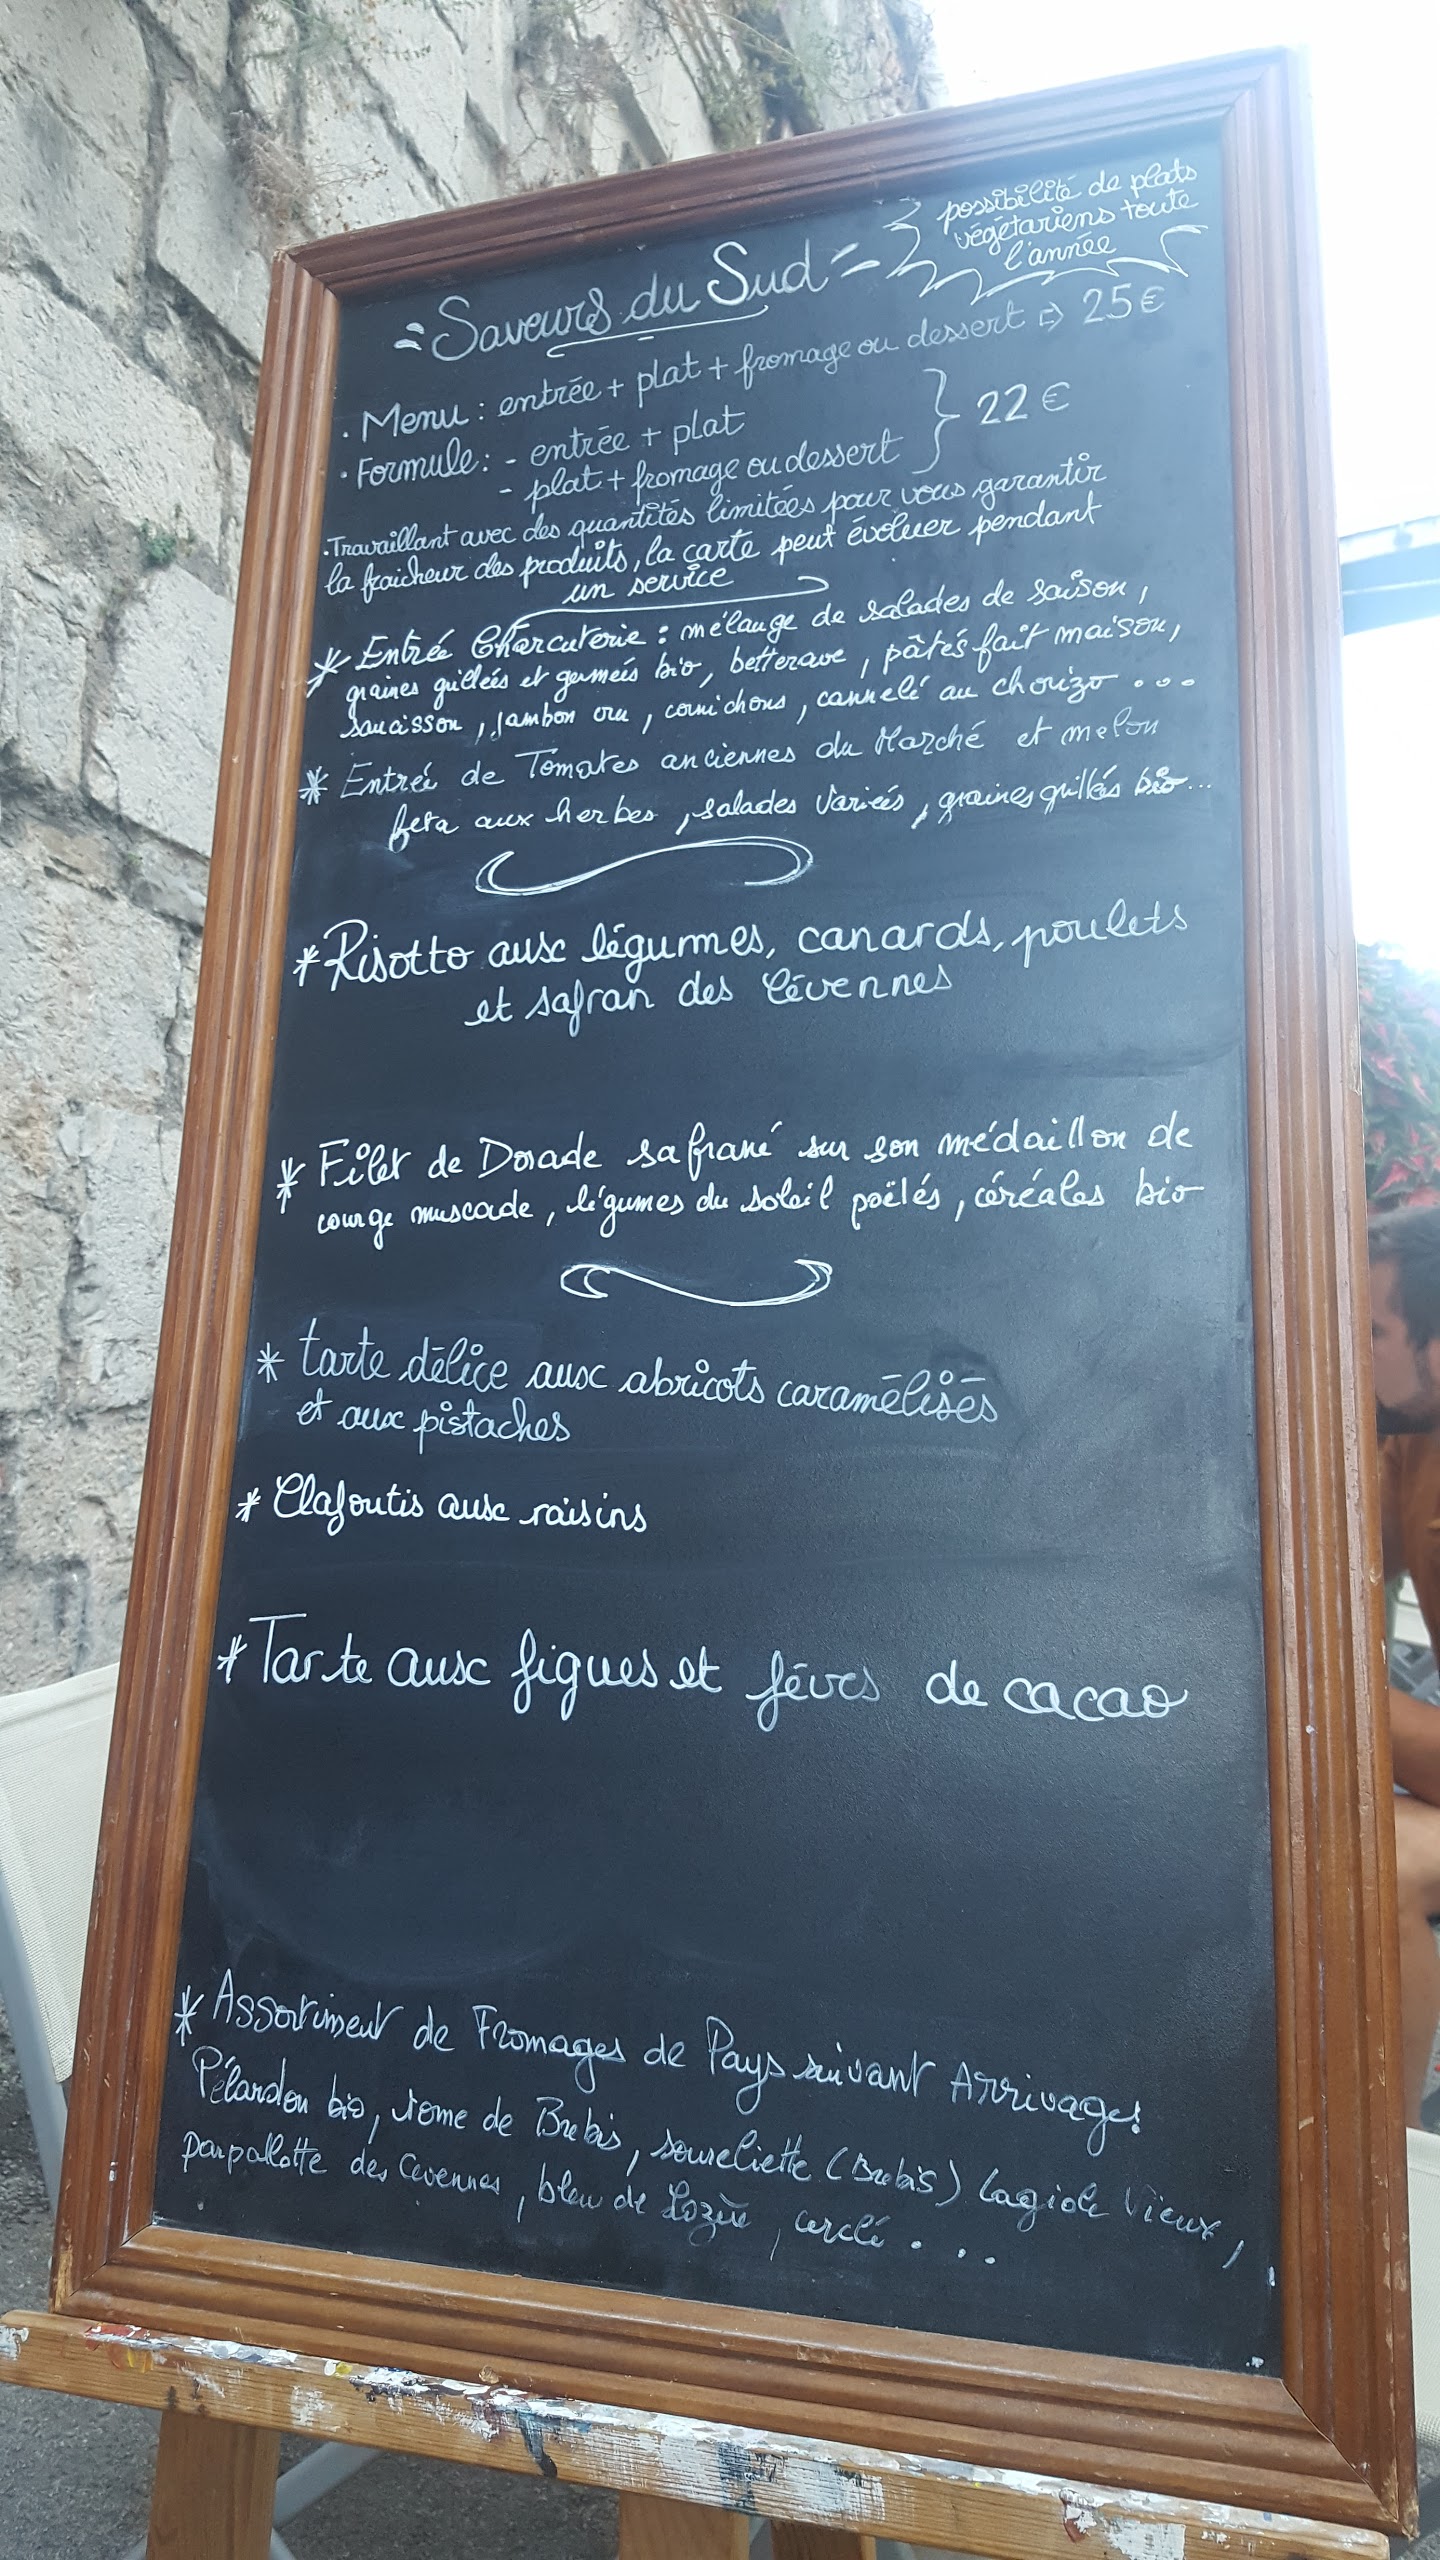 Saveurs du Sud
possibilité de plats
végétariens toute
l'année
. Menu : entrée + plat + fromage ou dessert ⇨ 25 €
. Formule : - entrée + plat
- plat + fromage ou dessert } 22 €
. Travaillant avec des quantités limitées pour vous garantir
la fraicheur des produits, la carte peut évoluer pendant
un service
* Entrée Charcuterie : mélange de salades de saison,
graines grillées et germées bio, betterave, pâtés fait maison,
saucisson, jambon cru, cornichons, cannelé au chorizo ...
* Entrée de Tomates anciennes du Marché et melon
feta aux herbes, salades variées, graines grillés bio...
* Risotto aux légumes, canards, poulets
et safran des Cévennes
* Filet de Dorade safrané sur son médaillon de
courge muscade, légumes du soleil poëlés, céréales bio
* tarte délice aux abricots caramélisés
et aux pistaches
* Clafoutis aux raisins
* Tarte aux figues et féves de cacao
* Assortiment de Fromages de Pays suivant Arrivages!
Pélardon bio, tome de Brebis, (Brebis) Lagiole Vieux,
parpallotte des Cevennes, bleu de Lozère, cerclé ....